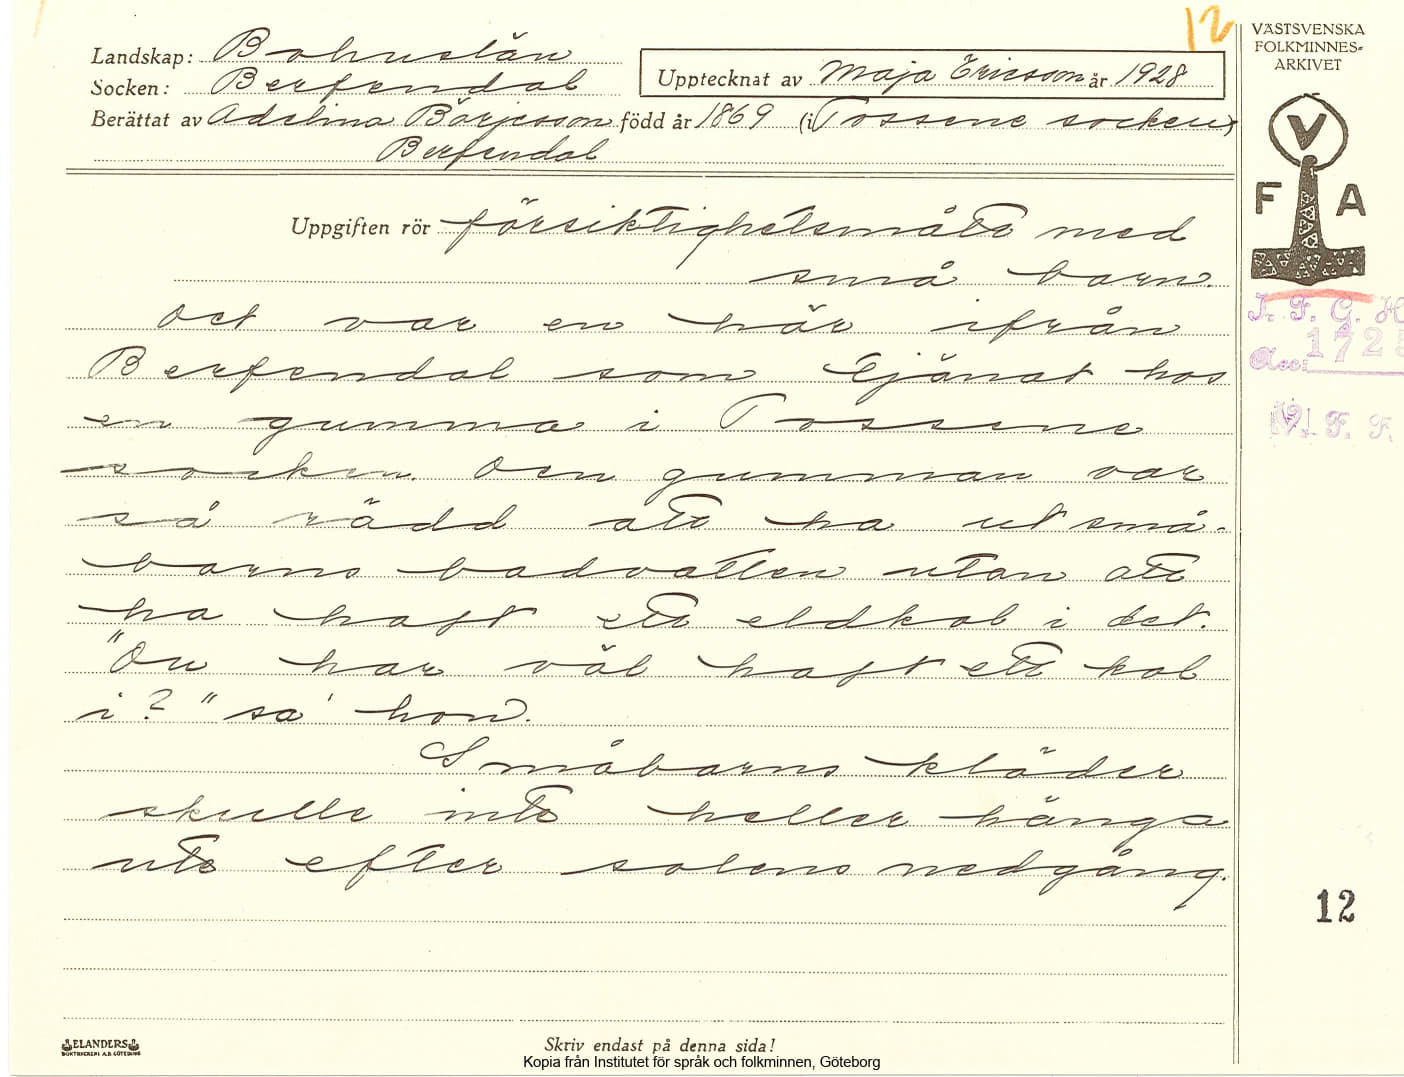 12
VÄSTSVENSKA
FOLKMINNES-
ARKIVET
Landskap: Bohuslän
Socken: Berfendal
Upptecknat av Maja Ericsson år 1928
Berättat av Adelina Börjesson född år 1869 (i Tossene socken)
Berfendal
V
F A
Uppgiften rör försiktighetsmått med
små barn.
I. F. G. H
Acc: 1725
V. F. F.
Det var en här ifrån
Berfendal som tjänat hos
en gumma i Tossene
socken. Den gumman var
så rädd att ha ut små-
barns badvatten utan att
ha haft ett eldkol i det.
"Du har väl haft ett kol
i?" sa' hon.
Småbarns kläder
skulle inte heller hänga
ute efter solens nedgång.
12
ELANDERS
BOKTRYCKERI A.B. GÖTEBORG
Skriv endast på denna sida!
Kopia från Institutet för språk och folkminnen, Göteborg